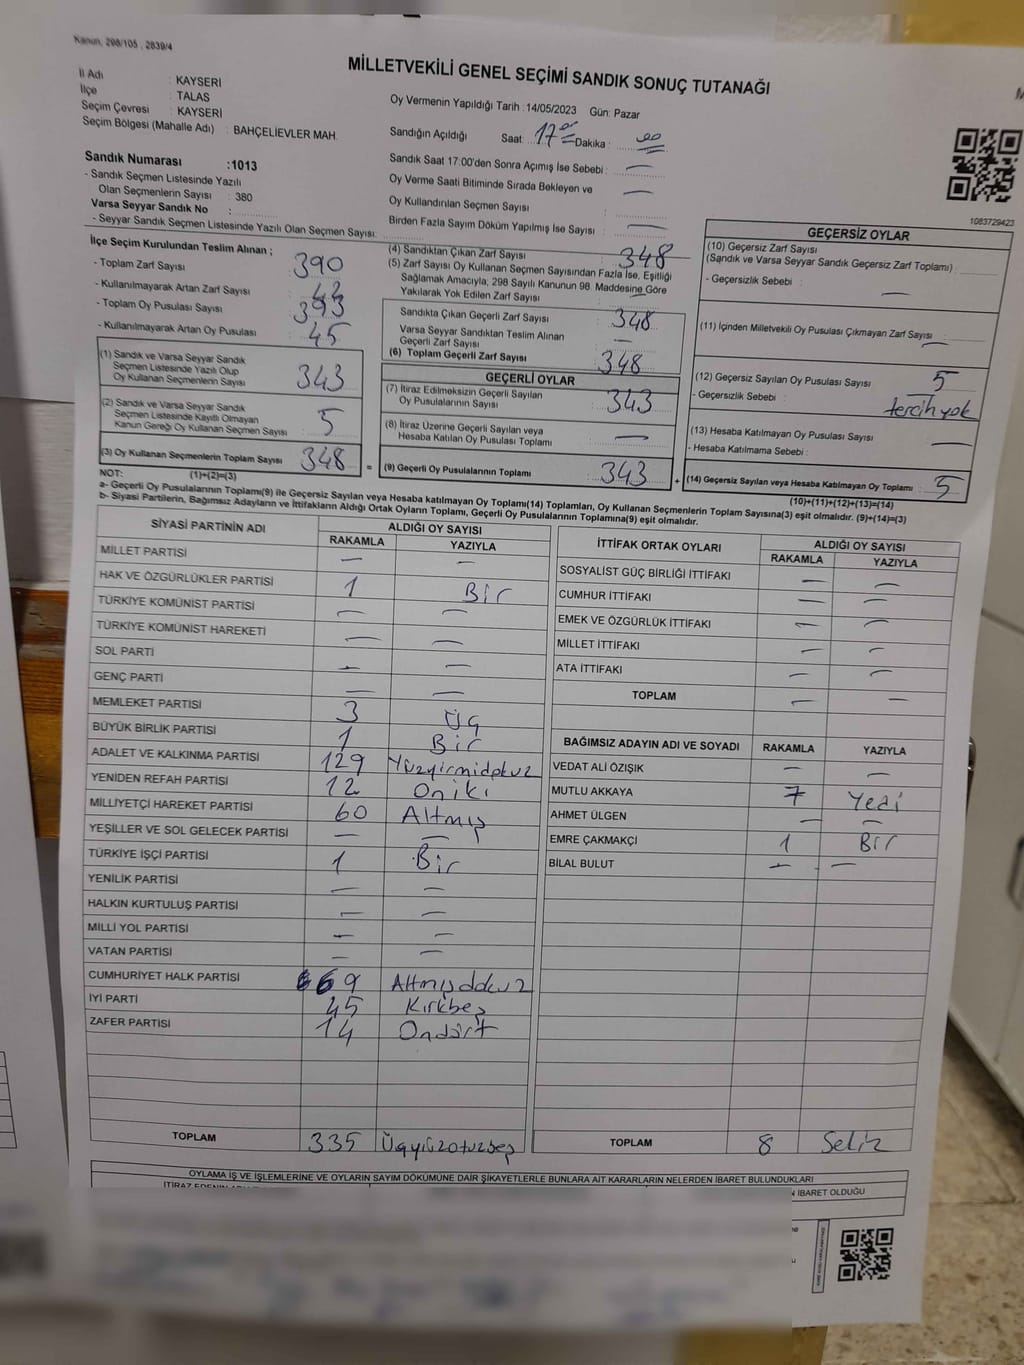 Kanun, 298/105 , 2839/4
MİLLETVEKİLİ GENEL SEÇİMİ SANDIK SONUÇ TUTANAĞI
İl Adı : KAYSERİ
İlçe : TALAS
Seçim Çevresi : KAYSERİ
Seçim Bölgesi (Mahalle Adı) : BAHÇELİEVLER MAH.
Oy Vermenin Yapıldığı Tarih :14/05/2023 Gün: Pazar
Sandığın Açıldığı Saat: 17 00 Dakika : 00
Sandık Saat 17:00'den Sonra Açımış İse Sebebi : —
Oy Verme Saati Bitiminde Sırada Bekleyen ve
Oy Kullandırılan Seçmen Sayısı : —
Birden Fazla Sayım Döküm Yapılmış İse Sayısı : —
Sandık Numarası :1013
- Sandık Seçmen Listesinde Yazılı
Olan Seçmenlerin Sayısı : 380
Varsa Seyyar Sandık No :
- Seyyar Sandık Seçmen Listesinde Yazılı Olan Seçmen Sayısı:
1083729423
İlçe Seçim Kurulundan Teslim Alınan ;
- Toplam Zarf Sayısı : 390
- Kullanılmayarak Artan Zarf Sayısı : 42
- Toplam Oy Pusulası Sayısı : 393
- Kullanılmayarak Artan Oy Pusulası : 45
(1) Sandık ve Varsa Seyyar Sandık
Seçmen Listesinde Yazılı Olup
Oy Kullanan Seçmenlerin Sayısı : 343
(2) Sandık ve Varsa Seyyar Sandık
Seçmen Listesinde Kayıtlı Olmayan
Kanun Gereği Oy Kullanan Seçmen Sayısı : 5
(3) Oy Kullanan Seçmenlerin Toplam Sayısı : 348
(4) Sandıktan Çıkan Zarf Sayısı : 348
(5) Zarf Sayısı Oy Kullanan Seçmen Sayısından Fazla İse, Eşitliği
Sağlamak Amacıyla, 298 Sayılı Kanunun 98. Maddesine Göre
Yakılarak Yok Edilen Zarf Sayısı : —
Sandıkta Çıkan Geçerli Zarf Sayısı : 348
Varsa Seyyar Sandıktan Teslim Alınan
Geçerli Zarf Sayısı : —
(6) Toplam Geçerli Zarf Sayısı : 348
GEÇERLİ OYLAR
(7) İtiraz Edilmeksizin Geçerli Sayılan
Oy Pusulalarının Sayısı : 343
(8) İtiraz Üzerine Geçerli Sayılan veya
Hesaba Katılan Oy Pusulası Toplamı : —
= (9) Geçerli Oy Pusulalarının Toplamı : 343
GEÇERSİZ OYLAR
(10) Geçersiz Zarf Sayısı
(Sandık ve Varsa Seyyar Sandık Geçersiz Zarf Toplamı) :
- Geçersizlik Sebebi : —
(11) İçinden Milletvekili Oy Pusulası Çıkmayan Zarf Sayısı : —
(12) Geçersiz Sayılan Oy Pusulası Sayısı : 5
- Geçersizlik Sebebi : tercih yok
(13) Hesaba Katılmayan Oy Pusulası Sayısı : —
- Hesaba Katılmama Sebebi :
+ (14) Geçersiz Sayılan veya Hesaba Katılmayan Oy Toplamı : 5
NOT: (1)+(2)=(3)
(10)+(11)+(12)+(13)=(14)
a- Geçerli Oy Pusulalarının Toplamı(9) ile Geçersiz Sayılan veya Hesaba katılmayan Oy Toplamı(14) Toplamları, Oy Kullanan Seçmenlerin Toplam Sayısına(3) eşit olmalıdır. (9)+(14)=(3)
b- Siyasi Partilerin, Bağımsız Adayların ve İttifakların Aldığı Ortak Oyların Toplamı, Geçerli Oy Pusulalarının Toplamına(9) eşit olmalıdır.
SİYASİ PARTİNİN ADI ALDIĞI OY SAYISI
RAKAMLA YAZIYLA
MİLLET PARTİSİ — —
HAK VE ÖZGÜRLÜKLER PARTİSİ 1 Bir
TÜRKİYE KOMÜNİST PARTİSİ — —
TÜRKİYE KOMÜNİST HAREKETİ — —
SOL PARTİ — —
GENÇ PARTİ — —
MEMLEKET PARTİSİ 3 Üç
BÜYÜK BİRLİK PARTİSİ 1 Bir
ADALET VE KALKINMA PARTİSİ 129 Yüzyirmidokuz
YENİDEN REFAH PARTİSİ 12 Oniki
MİLLİYETÇİ HAREKET PARTİSİ 60 Altmış
YEŞİLLER VE SOL GELECEK PARTİSİ — —
TÜRKİYE İŞÇİ PARTİSİ 1 Bir
YENİLİK PARTİSİ — —
HALKIN KURTULUŞ PARTİSİ — —
MİLLİ YOL PARTİSİ — —
VATAN PARTİSİ — —
CUMHURİYET HALK PARTİSİ 69 Altmışdokuz
İYİ PARTİ 45 Kırkbeş
ZAFER PARTİSİ 14 Ondört
TOPLAM 335 Üçyüzotuzbeş
İTTİFAK ORTAK OYLARI ALDIĞI OY SAYISI
RAKAMLA YAZIYLA
SOSYALİST GÜÇ BİRLİĞİ İTTİFAKI — —
CUMHUR İTTİFAKI — —
EMEK VE ÖZGÜRLÜK İTTİFAKI — —
MİLLET İTTİFAKI — —
ATA İTTİFAKI — —
TOPLAM — —
BAĞIMSIZ ADAYIN ADI VE SOYADI RAKAMLA YAZIYLA
VEDAT ALİ ÖZIŞIK — —
MUTLU AKKAYA 7 Yedi
AHMET ÜLGEN — —
EMRE ÇAKMAKÇİ 1 Bir
BİLAL BULUT — —
TOPLAM 8 Sekiz
OYLAMA İŞ VE İŞLEMLERİNE VE OYLARIN SAYIM DÖKÜMÜNE DAİR ŞİKAYETLERLE BUNLARA AİT KARARLARIN NELERDEN İBARET BULUNDUKLARI
N İBARET OLDUĞU